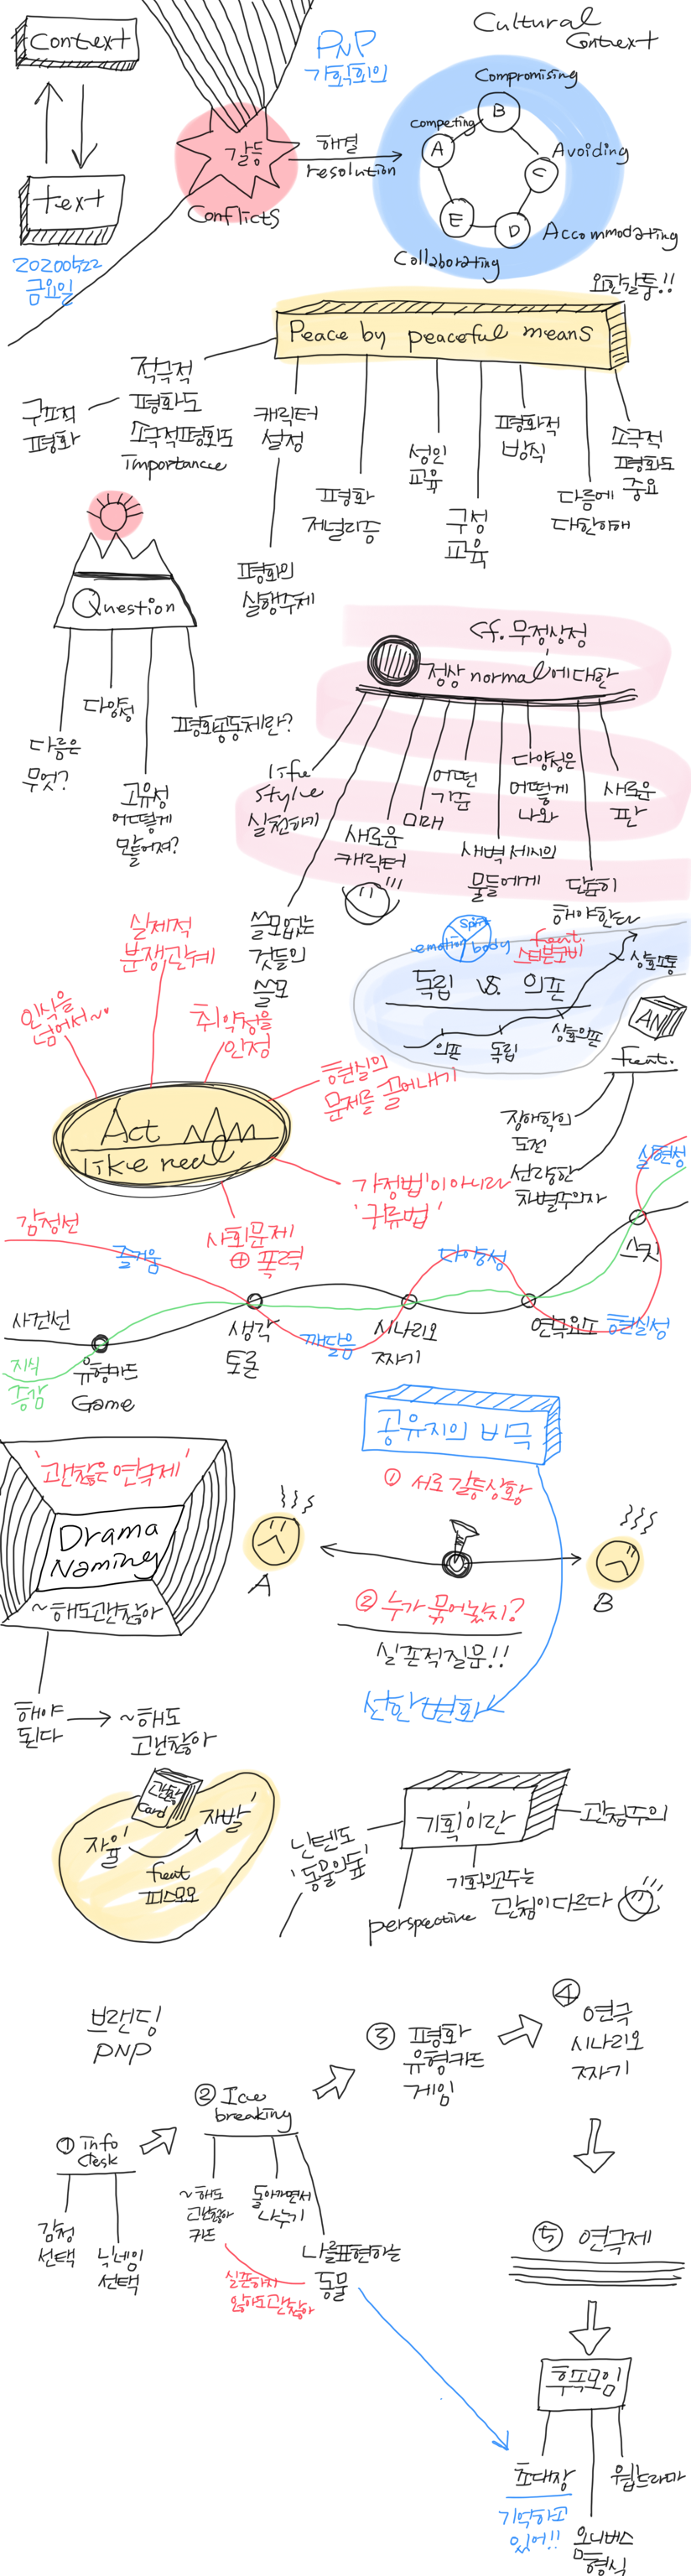 Context
text
20200522
금요일
갈등
Conflicts
PNP
기획회의
해결
resolution
Cultural
Context
Compromising
Competing
B
A
C
E
D
Avoiding
Accommodating
Collaborating
Peace by peaceful means
적극적
평화도
소극적평화도
importance
구조적
평화
캐릭터
설정
평화의
실행주체
평화
저널리즘
성인
교육
구성
교육
평화적
방식
다름에
대한이해
소극적
평화도
중요
Question
다름은
무엇?
다양성
고유성
어떻게
만들어져?
평화공동체란?
cf. 무정상정
정상 normal'에대한
life
style
실천하기
쓸모없는
것들의
쓸모
새로운
캐릭터
미래
어떤
기준
새벽 세시의
몸들에게
다양성은
어떻게
나와
단단히
해야한다
새로운
판
Spirit
emotion
body
feat.
독립 vs. 의존
의존
독립
상호의존
상호소통
AN
feat.
장애학의
도전
선량한
차별주의자
인식을
넘어서~
실제적
분쟁관계
취약성을
인정
현실의
문제를 끌어내기
Act
like real
가정법'이아니라
'귀류법'
사회문제
⊕ 폭력
감정선
즐거움
사건선
지식
증감
유형카드
Game
생각
토론
깨달음
시나리오
짜기
다양성
연극요소
현실성
스킷
실현성
'괜찮은연극제'
Drama
Naming
~해도괜찮아
해야
된다
~해도
괜찮아
공유지의 비극
① 서로갈등상황
A
B
② 누가 묶어놨지?
실존적질문!!
선한변화
괜찮아
Card
자율'
자발'
feat
피스모모
'기획'이란
관점주의
닌텐도
'동물의숲'
perspective
기획의고수는
관점이다르다
브랜딩
PNP
① info
desk
감정
선택
닉네임
선택
② Ice
breaking
~해도
괜찮아
카드
돌아가면서
나누기
나를표현하는
동물
실존하지
않아도괜찮아
③ 평화
유형카드
게임
④
연극
시나리오
짜기
⑤ 연극제
후속모임
초대장
기억하고
있어!!
옴니버스
형식
웹드라마